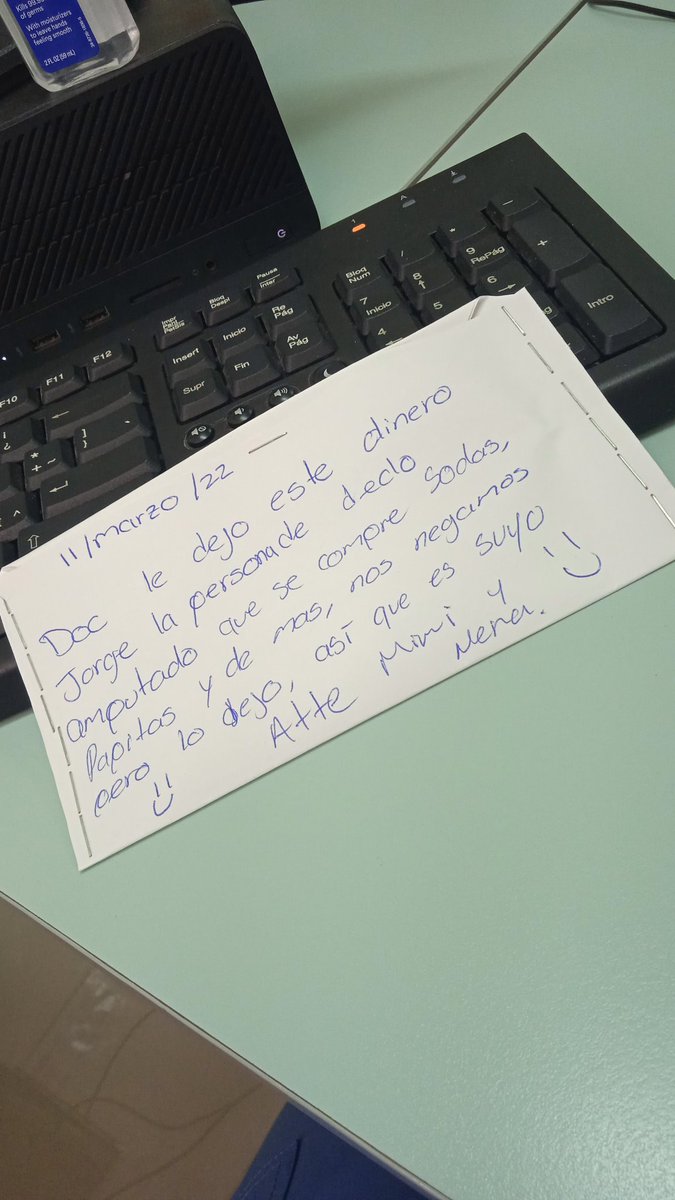 Kills 99.9
of germs
With moisturizers
to leave hands
feeling smooth
2 FL OZ (59 mL)
1
A
Impr
Pant
PetSis
Bloq
Despl
Pausa
Inter
Bloq
Num
/
*
-
Insert
Inicio
Re
Pág
7
Inicio
8
9
RePág
+
F10
F11
F12
Supr
Fin
Av
Pág
4
5
6
Intro
¿
¡
]
}
*
+
~
^
11/marzo/22
Doc le dejo este dinero
Jorge la persona de dedo
amputado que se compre sodas,
Papitas y de mas, nos negamos
pero lo dejo, así que es suyo
Atte Mimi y
Nena.